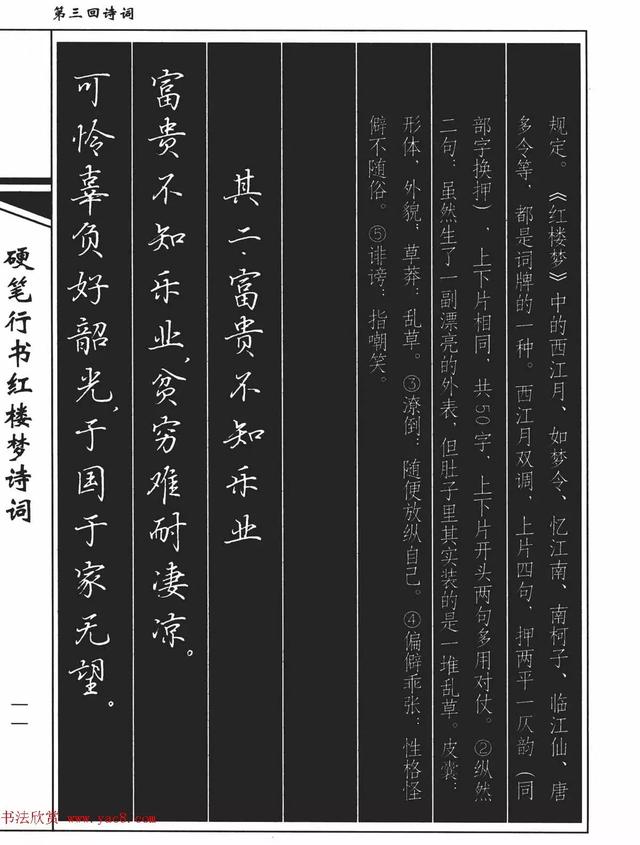 第三回诗词
规定。《红楼梦》中的西江月、如梦令、忆江南、南柯子、临江仙、唐
多令等，都是词牌的一种。西江月双调，上片四句，押两平一仄韵（同
部字换押），上下片相同，共50字，上下片开头两句多用对仗。②纵然
二句：虽然生了一副漂亮的外表，但肚子里其实装的是一堆乱草。皮囊：
形体，外貌；草莽：乱草。③潦倒：随便放纵自己。④偏僻乖张：性格怪
僻不随俗。⑤诽谤：指嘲笑。
其二·富贵不知乐业
富贵不知乐业，贫穷难耐凄凉。
可怜辜负好韶光，于国于家无望。
硬笔行书红楼梦诗词
一一
书法欣赏 www.yac8.com